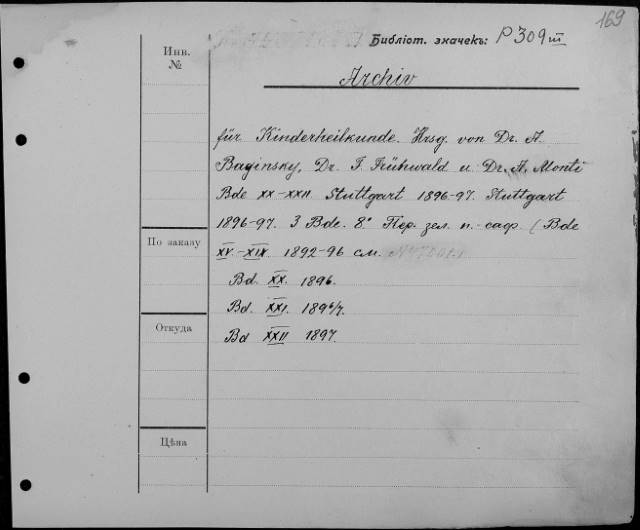 169
Библіот. значекъ: P 309 III
Инв.
№
Archiv
für Kinderheilkunde. Hrsg. von Dr. A.
Baginsky, Dr. F. Frühwald u Dr. A. Monti
Bde XX-XXII. Stuttgart 1896-97. Stuttgart
1896-97. 3 Bde. 8° Пер. зел. п.-саф. (Bde
По заказу
XV-XIX. 1892-96 см.
Bd. XX. 1896.
Bd. XXI. 1896/7.
Откуда
Bd XXII 1897.
Цѣна